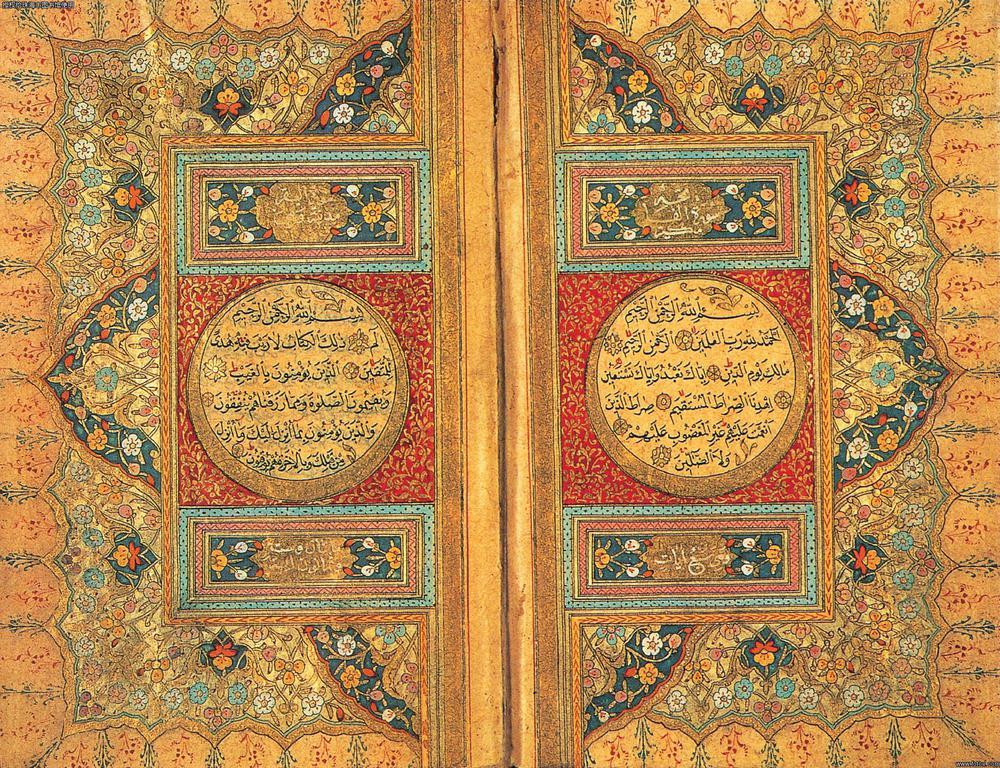 سورة الفاتحة
مكية
بسم الله الرحمن الرحيم
الحمد لله رب العلمين الرحمن الرحيم
مالك يوم الدين اياك نعبد واياك نستعين
اهدنا الصراط المستقيم صراط الذين
انعمت عليهم غير المغضوب عليهم
ولا الضالين
سبع آيات
بسم الله الرحمن الرحيم
الم ذلك الكتاب لا ريب فيه هدى
للمتقين الذين يؤمنون بالغيب
ويقيمون الصلوة ومما رزقناهم ينفقون
والذين يؤمنون بما انزل اليك وما انزل
من قبلك وبالاخرة هم يوقنون
授权给珠海市图书馆使用